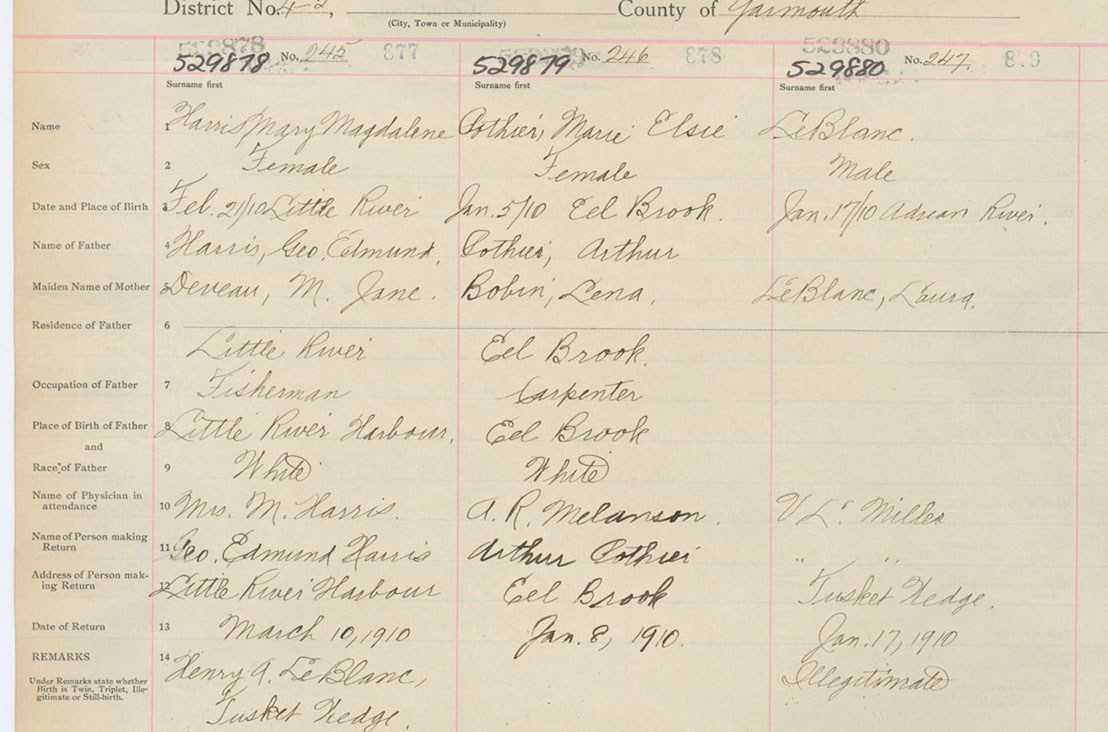 District No. 4-2, County of Yarmouth
(City, Town or Municipality)
529878 No. 245 877 529879 No. 246 878 529880 No. 247.
529878 529880
Surname first Surname first Surname first
Name 1 Harris, Mary Magdalene Pothier, Marie Elsie LeBlanc.
Sex 2 Female Female Male
Date and Place of Birth 3 Feb. 21/10 Little River Jan. 5/10 Eel Brook. Jan. 17/10 River.
Name of Father 4 Harris, Geo. Edmund. Pothier, Arthur
Maiden Name of Mother 5 Deveau, M. Jane. Bobin, Lena. LeBlanc, Laura.
Residence of Father 6
Little River Eel Brook.
Occupation of Father 7 Fisherman Carpenter
Place of Birth of Father 8 Little River Harbour. Eel Brook
and
Race of Father 9 White White
Name of Physician in
attendance 10 Mrs. M. Harris. A. R. Melanson. Miller
Name of Person making
Return 11 Geo. Edmund Harris Arthur Pothier " "
Address of Person mak-
ing Return 12 Little River Harbour Eel Brook Tusket Wedge.
Date of Return 13 March 10, 1910 Jan. 8, 1910. Jan. 17, 1910
REMARKS 14 Henry A. LeBlanc, Illegitimate
Under Remarks state whether
Birth is Twin, Triplet, Ille-
gitimate or Still-birth.
Tusket Wedge.